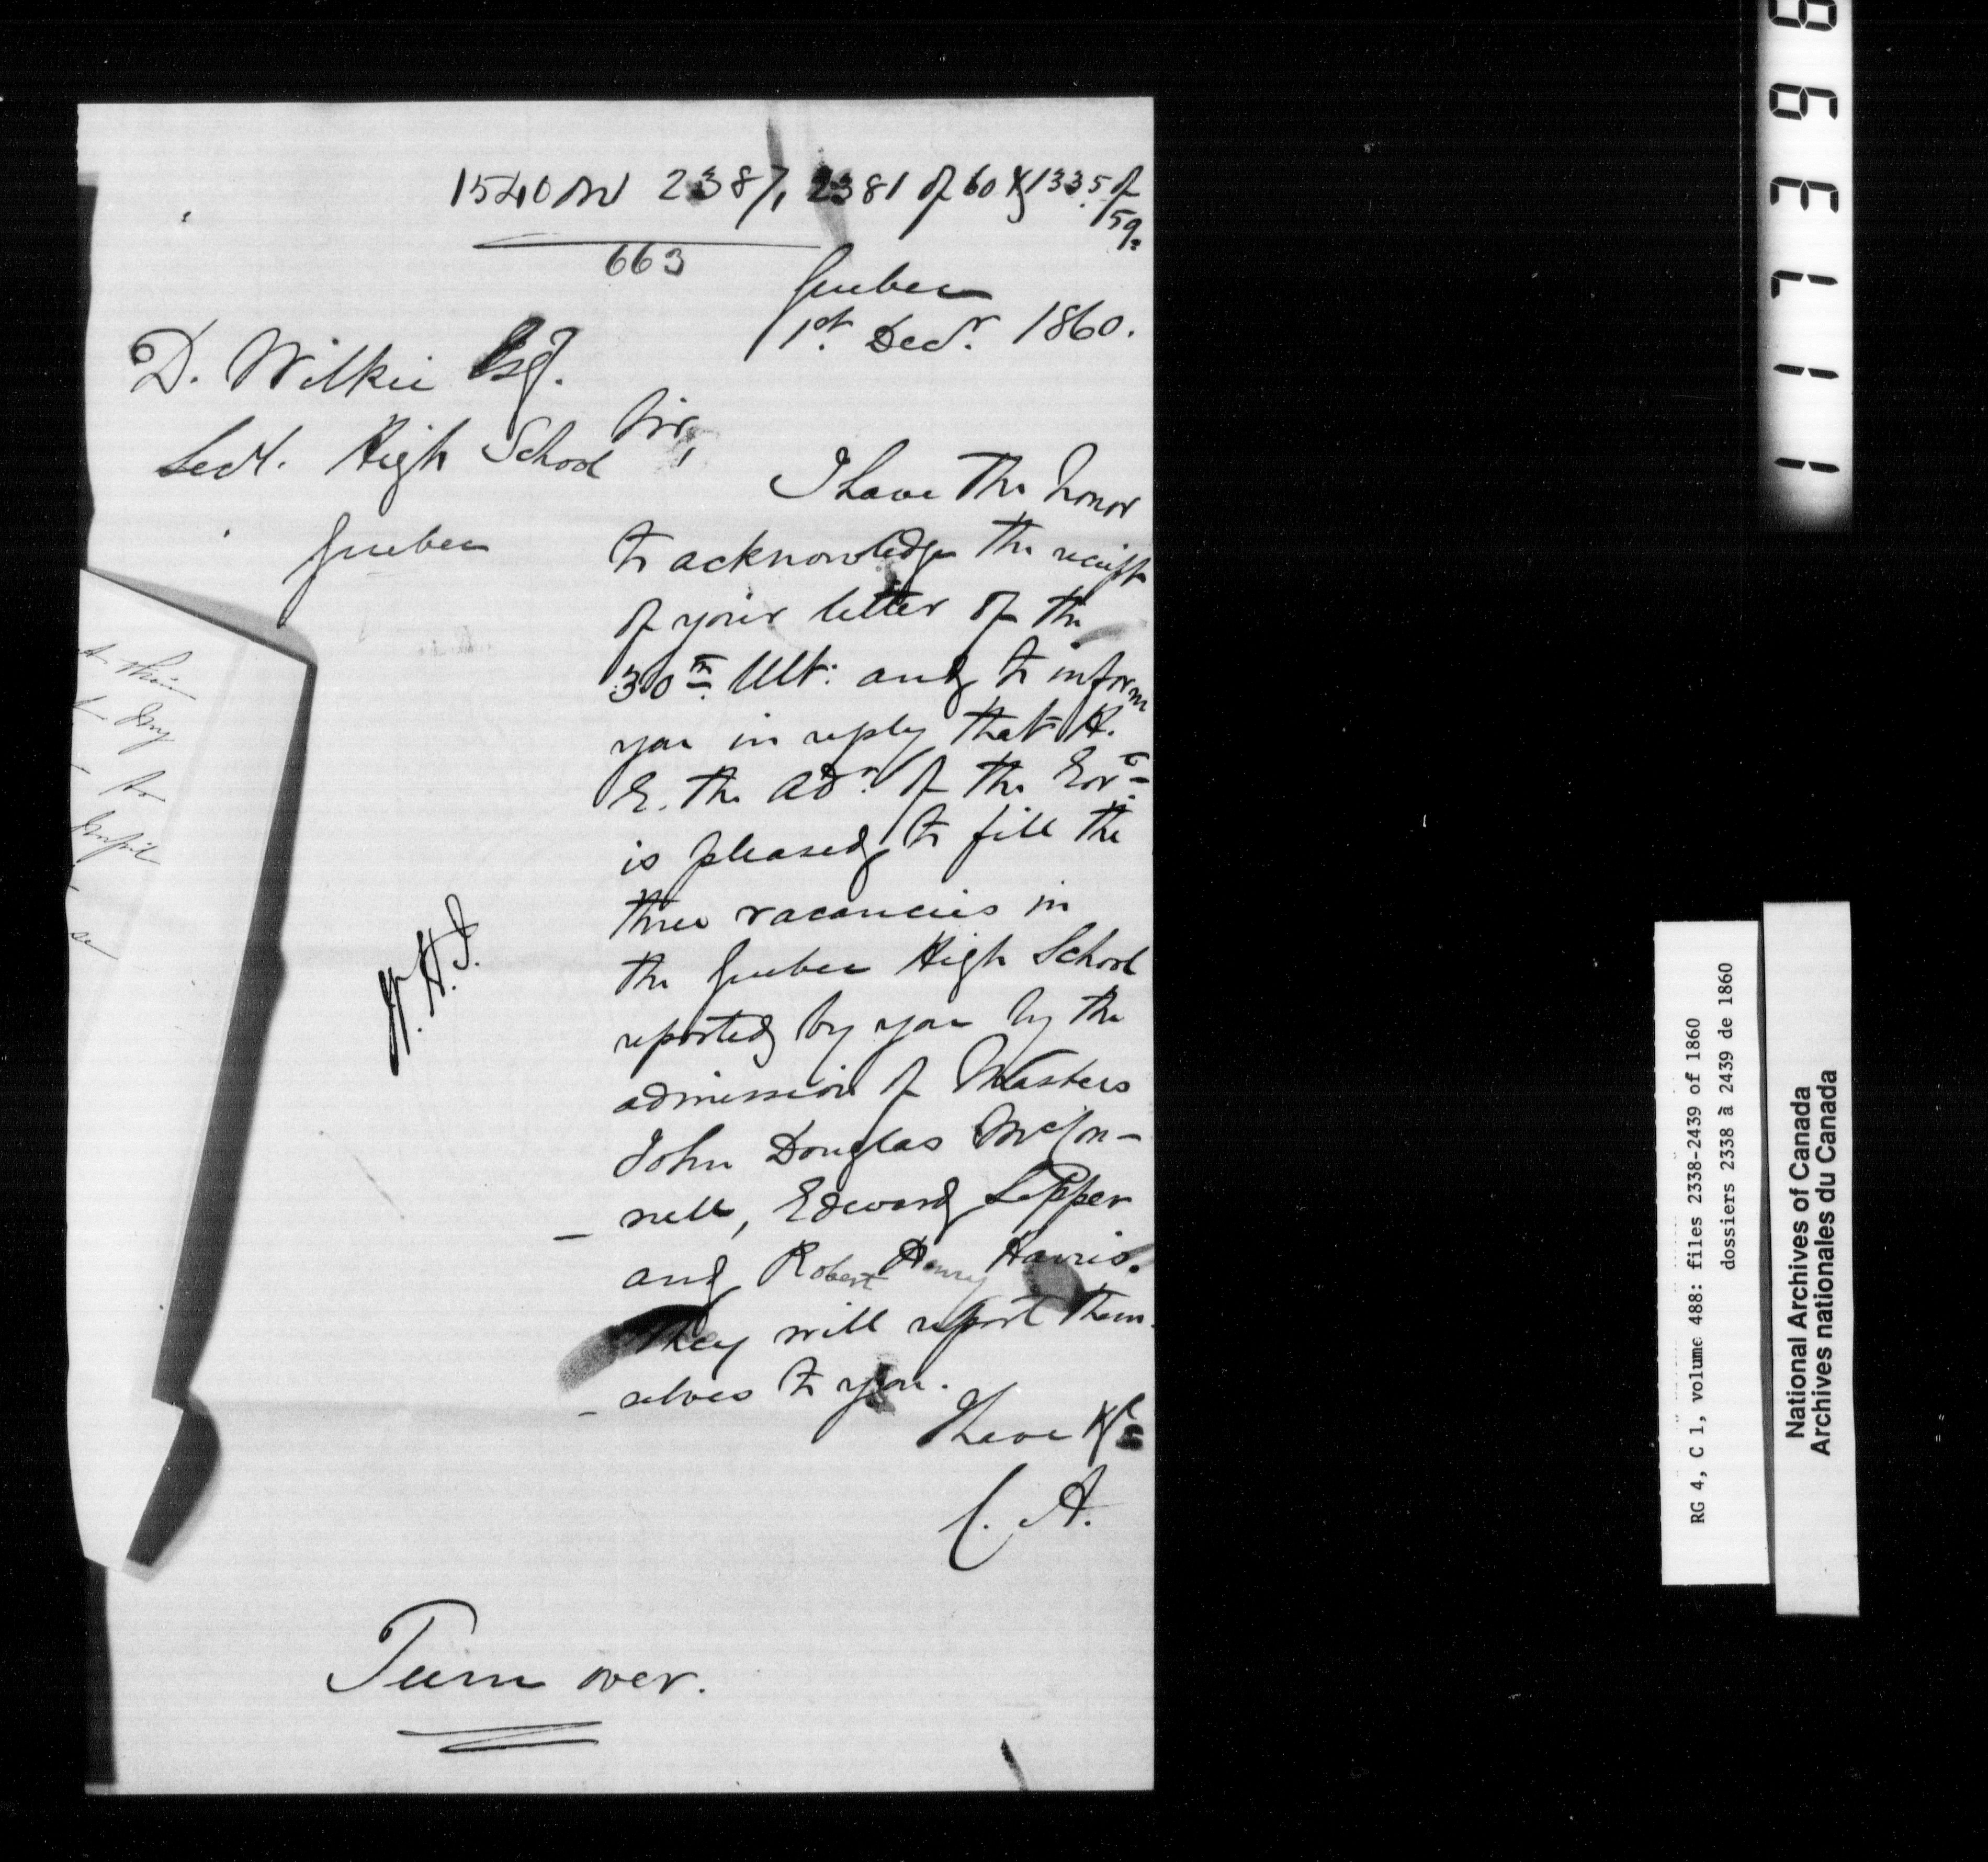 1540 on 2387, 2381 of 60 & 1335 of
59.
663
Quebec
1st. Decr. 1860.
D. Wilkie Esq.
Secy. High School
Quebec
Sir,
I have the honor
to acknowledge the receipt
of your letter of the
30th. Ult: and to inform
you in reply that H.
E. the Adr. of the Govt.
is pleased to fill the
three vacancies in
the Quebec High School
reported by you by the
admission of Masters
John Douglas McCon-
nell, Edward Lepper
and Robert Henry Harris.
They will report them-
selves to you.
I have &c
C. A.
W. H. J.
Turn over.
to
pupil
117396
RG 4, C 1, volume 488: files 2338-2439 of 1860
dossiers 2338 à 2439 de 1860
National Archives of Canada
Archives nationales du Canada